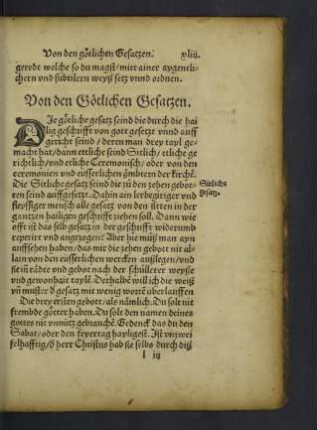 Von den götlichen Gesatzen. xliij.
geredt welche so du magst/ mitt ainer aygentli-
chern vnd subtilern weyß setz vnnd ordnen.
Von den Götlichen Gesatzen.
DIe götliche gesatz seind die durch die hai
lig geschrifft von gott gesetzt vnnd auff
gericht seind / deren man drey tayl ge-
macht hat/ dann ettliche seind Sitlich / etliche ge
richtlich/ vnd etliche Ceremonisch/ oder von den
ceremonien vnd eusserlichen ämbtern der kirchē.
Die Sitliche gesatz seind die zů den zehen gebot-
ten seind auffgesetzt. Dahin ain lerbegiriger vnd
fleyssiger mensch alle gesatz von den sitten in der
gantzen hailigen geschrifft ziehen soll. Dann wie
offt ist das selb gesatz in der geschrifft widerumb
repetirt vnd angezogen? Aber hie můß man ayn
auffsehen haben/ das mir die zehen gebott nit al-
lain von den eusserlichen wercken außlegen/ vnd
Sitliche
gesatz.
sie in rädte vnd gebot nach der schůllerer weyse
vnd gewonhait taylē. Derhalbē will ich die weiß
vn̄ muster d̄ gesatz mit wenig wortē überlauffen
Die drey ersten gebott/ als nämlich. Du solt nit
frembde götter haben. Du solt den namen deines
gottes nit vnnütz gebrauchē. Gedenck das du den
Sabat/ oder den feyertag hayligest. Ist vnzwei
felhafftig/ d̄ herr Christus hab sie selbs durch diß
l iij